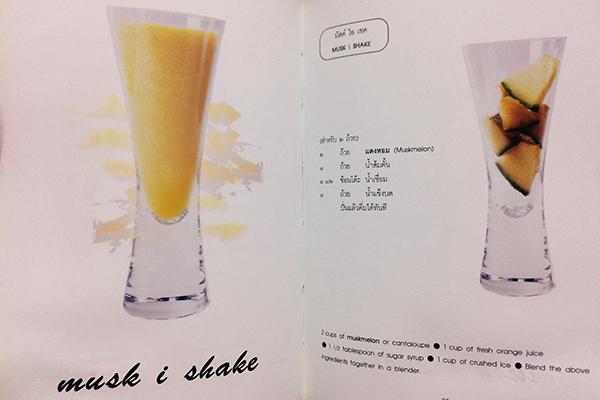 musk i shake
มัสค์ ไอ เชค
MUSK I SHAKE
(สำหรับ ๒ ถ้วย)
๒ ถ้วย แตงหอม (Muskmelon)
๑ ถ้วย น้ำส้มคั้น
๑ ๑/๒ ช้อนโต๊ะ น้ำเชื่อม
๑ ถ้วย น้ำแข็งบด
ปั่นแล้วดื่มได้ทันที
2 cups of muskmelon or cantaloupe ● 1 cup of fresh orange juice
● 1 1/2 tablespoon of sugar syrup ● 1 cup of crushed ice ● Blend the above
ingredients together in a blender.